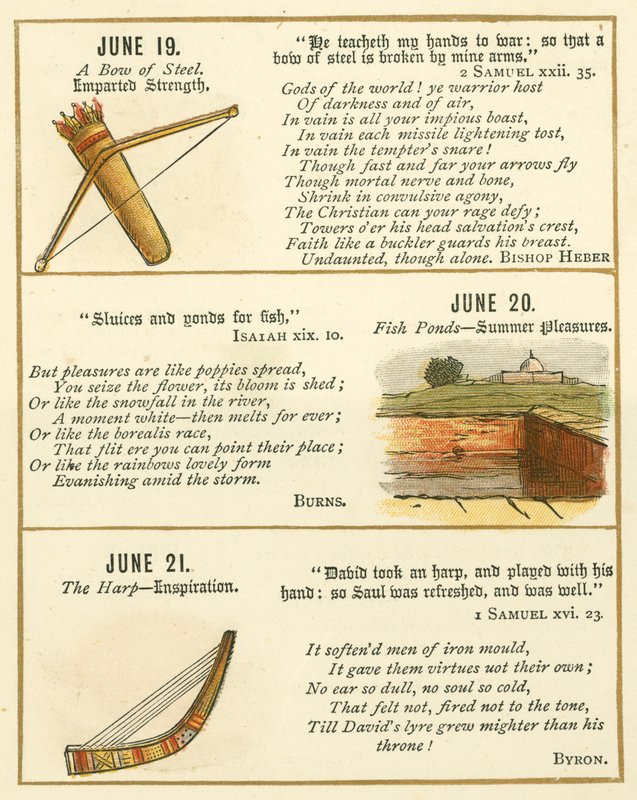 JUNE 19.
A Bow of Steel.
Imparted Strength.
"He teacheth my hands to war: so that a
bow of steel is broken by mine arms."
2 SAMUEL xxii. 35.
Gods of the world! ye warrior host
Of darkness and of air,
In vain is all your impious boast,
In vain each missile lightening tost,
In vain the tempter's snare!
Though fast and far your arrows fly
Though mortal nerve and bone,
Shrink in convulsive agony,
The Christian can your rage defy;
Towers o'er his head salvation's crest,
Faith like a buckler guards his breast.
Undaunted, though alone. BISHOP HEBER
JUNE 20.
Fish Ponds—Summer Pleasures.
"Sluices and yonds for fish,"
ISAIAH xix. 10.
But pleasures are like poppies spread,
You seize the flower, its bloom is shed;
Or like the snowfall in the river,
A moment white—then melts for ever;
Or like the borealis race,
That flit ere you can point their place;
Or like the rainbows lovely form
Evanishing amid the storm.
BURNS.
JUNE 21.
The Harp—Inspiration.
"David took an harp, and played with his
hand: so Saul was refreshed, and was well."
1 SAMUEL xvi. 23.
It soften'd men of iron mould,
It gave them virtues uot their own;
No ear so dull, no soul so cold,
That felt not, fired not to the tone,
Till David's lyre grew mighter than his
throne!
BYRON.